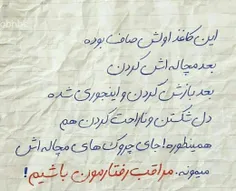 این کاغذ اولش صاف بوده
بعد مچاله اش کردن
بعد بازش کردن و اینجوری شده
دل شکستن و ناراحت کردن هم
همینطوره! جای چروک های مچاله اش
میمونه. مراقب رفتارمون باشیم!